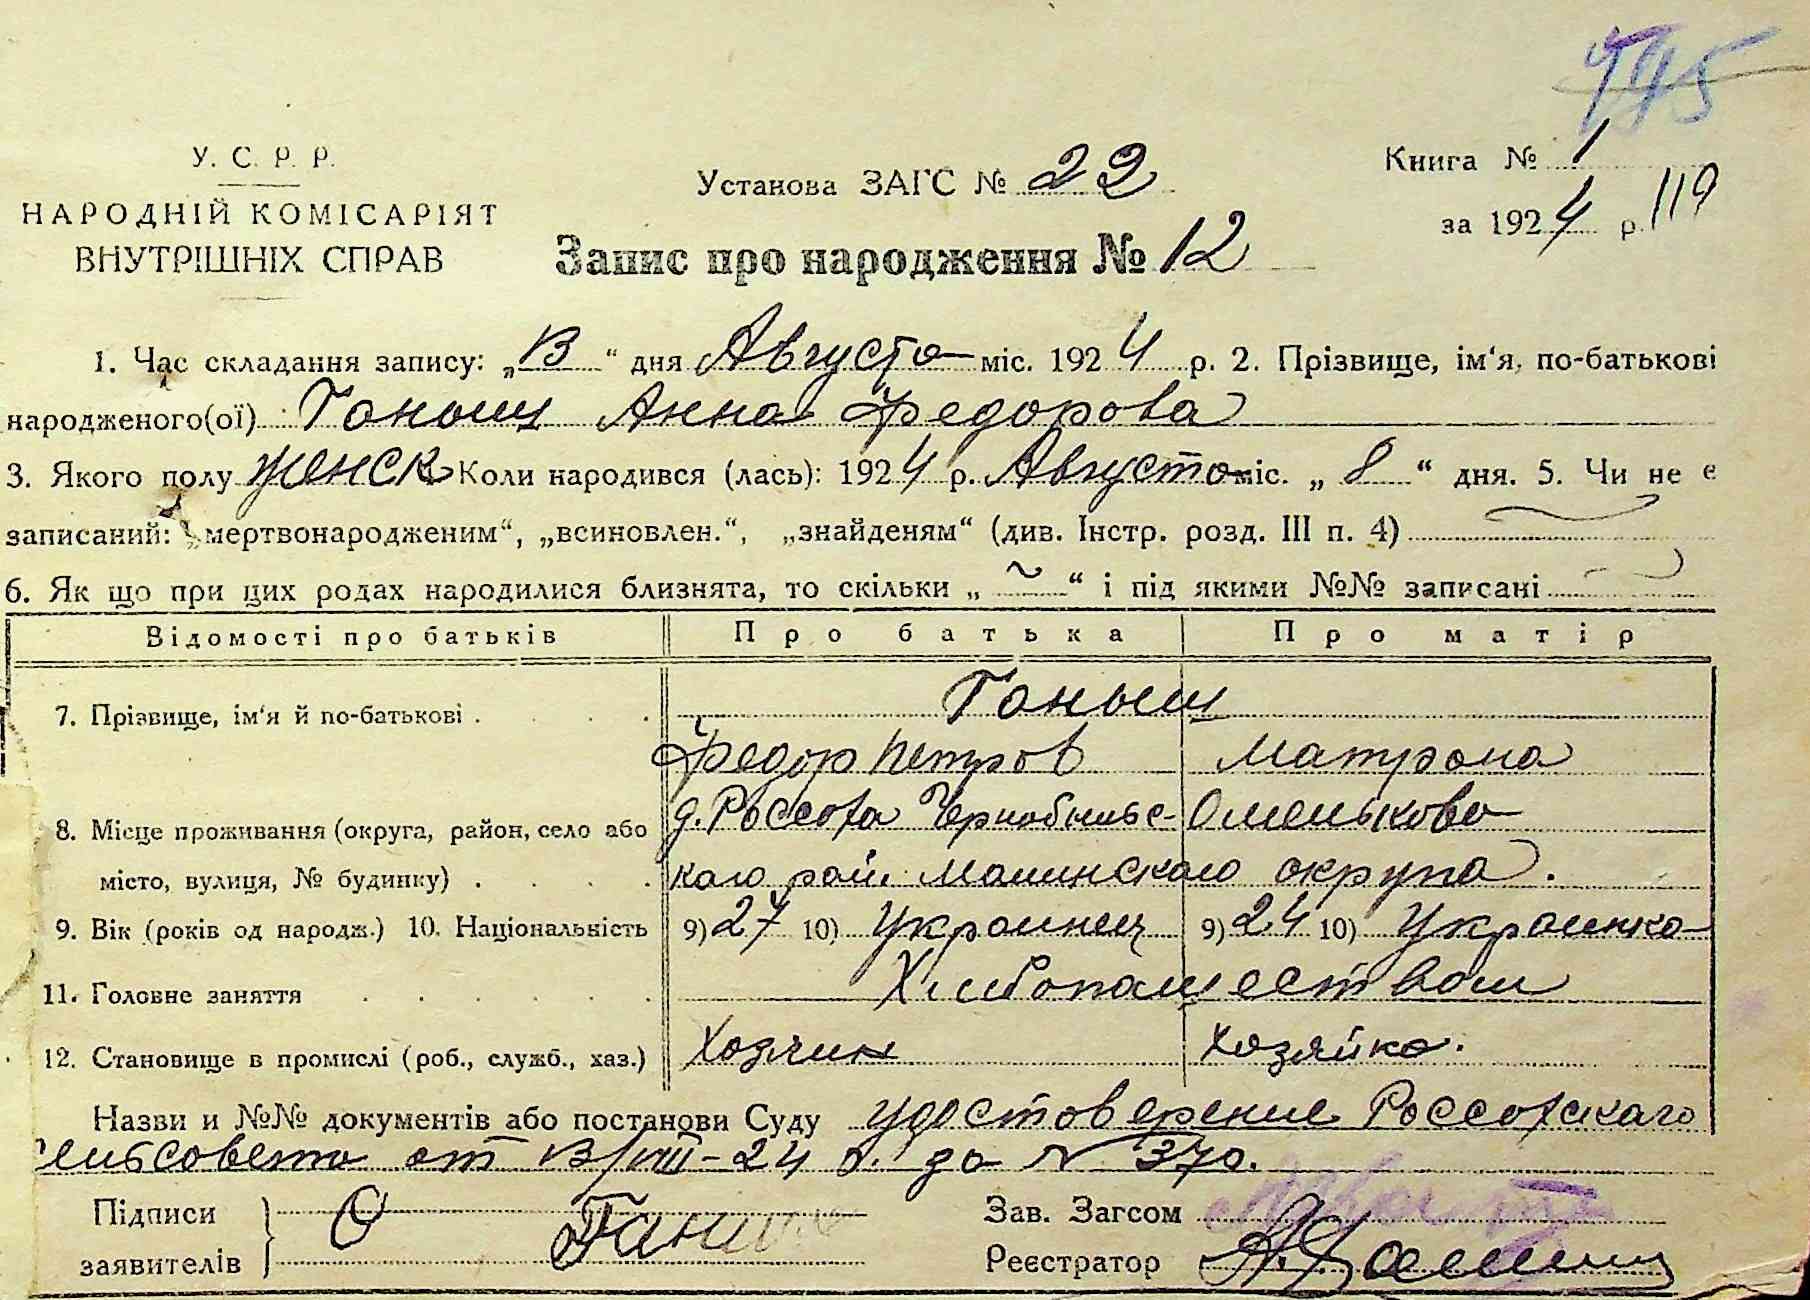 745
У. С. Р. Р.
НАРОДНІЙ КОМІСАРІЯТ
ВНУТРІШНІХ СПРАВ
Установа ЗАГС № 22
Книга № 1
за 1924 р. 119
Запис про народження № 12
1. Час складання запису: „13“ дня Августа міс. 1924 р. 2. Прізвище, ім‘я, по-батькові
народженого(ої) Ганыш Анна Федорова
3. Якого полу женск Коли народився (лась): 1924 р. Августа міс. „8“ дня. 5. Чи не є
записаний: „мертвонародженим“, „всиновлен.“, „знайденям“ (див. Інстр. розд. III п. 4)
6. Як що при цих родах народилися близнята, то скільки „ ~ “ і під якими №№ записані
Відомості про батьків Про батька Про матір
7. Прізвище, ім‘я й по-батькові . . . . Ганыш
Федор Петров Матрона
8. Місце проживання (округа, район, село або д. Россоха Чернобыльс- Омелькова
місто, вулиця, № будинку) . . . . каго рай. Малинскаго округа.
9. Вік (років од народж.) 10. Національність 9) 27 10) Украинец 9) 24 10) Украинка
11. Головне заняття . . . . . . Хлибопашеством
12. Становище в промислі (роб., служб., хаз.) Хозяин Хозяйка.
Назви и №№ документів або постанови Суду удостоверение Россохскаго
сельсовета от 13/VIII-24 г. за № 370.
Підписи
заявителів } Ганыш
Зав. Загсом
Реєстратор